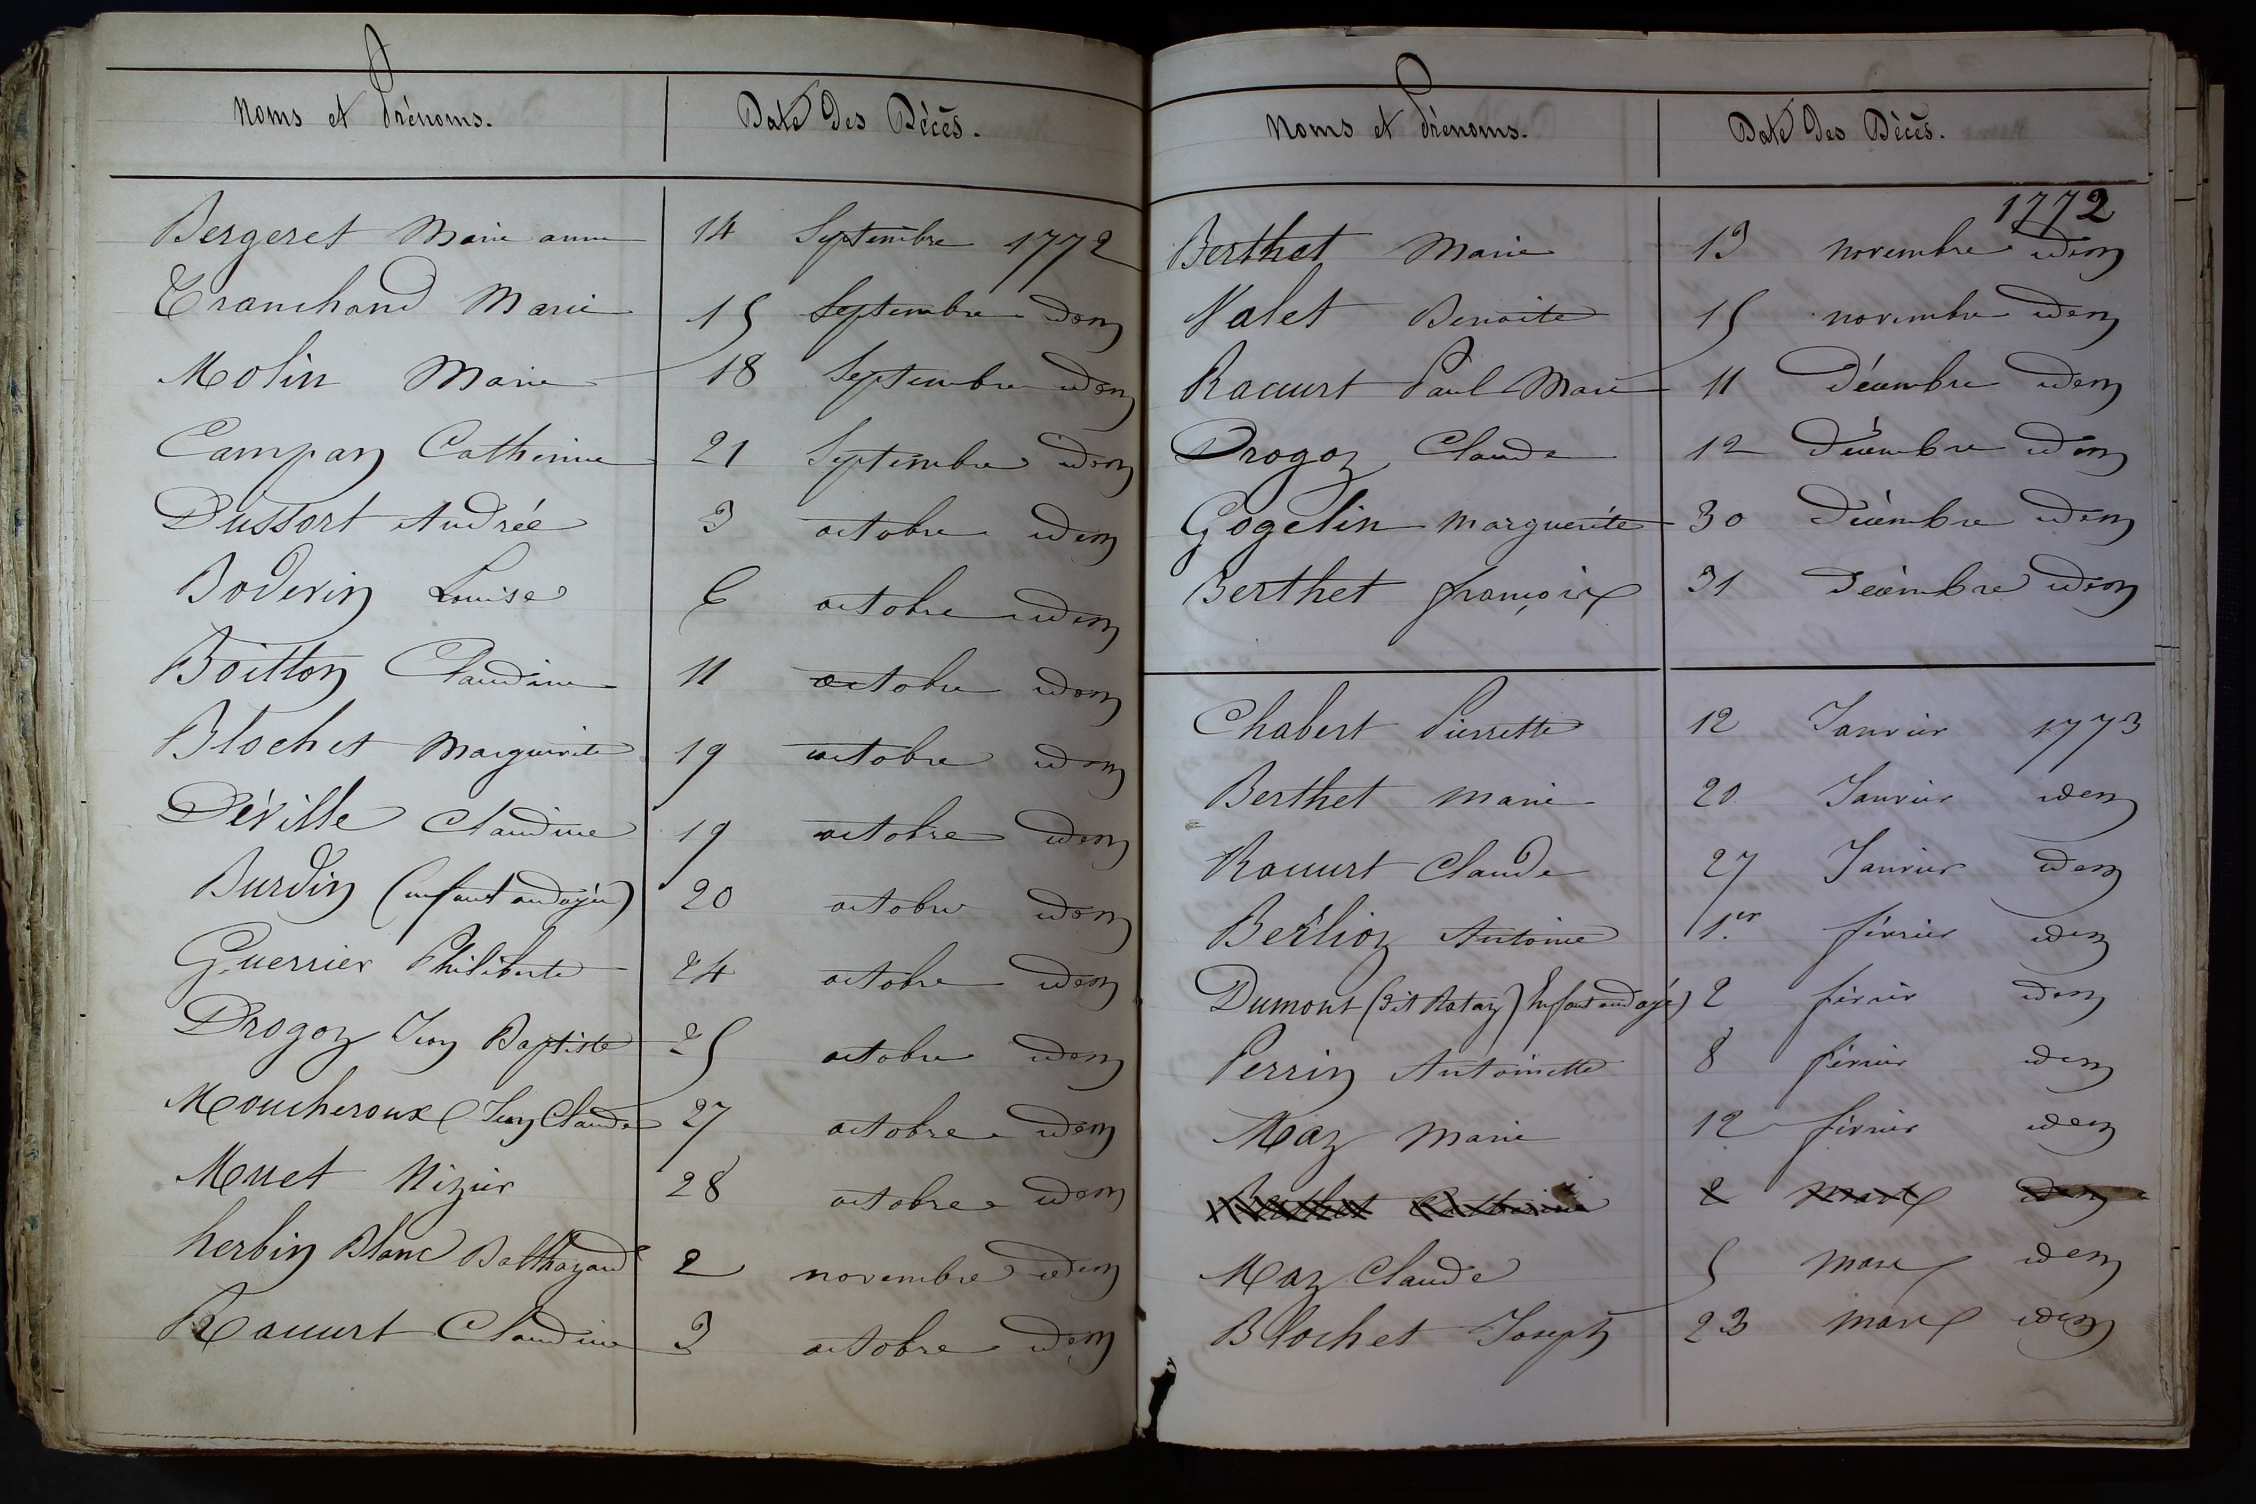 Noms et Prénoms. Date des Décès.
Bergeret Marie anne 14 Septembre 1772
Tranchand Marie 15 Septembre idem
Molin Marie 18 Septembre idem
Campan Catherine 21 Septembre idem
Dussort Andrée 3 octobre idem
Boderin Louise 6 octobre idem
Boitton Claudine 11 octobre idem
Blochet Marguerite 19 octobre idem
Déville Claudine 19 octobre idem
Burdin (enfant ondoyée) 20 octobre idem
Guerrier Philiberte 24 octobre idem
Drogoz Jean Baptiste 25 octobre idem
Moucheroux Jean Claude 27 octobre idem
Muet Nizier 28 octobre idem
herbin Blanc Balthazard 2 novembre idem
Racurt Claudine 3 octobre idem
Noms et Prénoms. Date des Décès.
1772
Berthet Marie 13 novembre idem
Valet Benoite 15 novembre idem
Racurt Paul Marie 11 Décembre idem
Drogoz Claude 12 Décembre idem
Gogelin Marguerite 30 Décembre idem
Berthet françoix 31 Décembre idem
Chabert Pierrette 12 Janvier 1773
Berthet Marie 20 Janvier idem
Racurt Claude 27 Janvier idem
Berlioz Antoine 1.er février idem
Dumont (dit Rotaz) Enfant ondoyé) 2 février idem
Perrin Antoinette 8 février idem
Maz Marie 12 février idem
Berthet Catherine 2 Mars idem
Maz Claude 5 Mars idem
Blochet Joseph 23 Mars idem